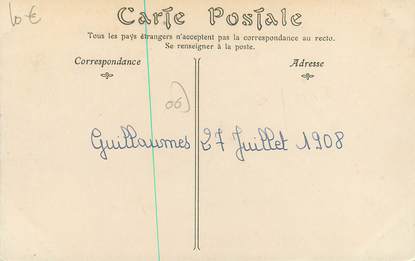 10 €
Carte Postale
Tous les pays étrangers n'acceptent pas la correspondance au recto.
Se renseigner à la poste.
Correspondance
Adresse
06
Guillaumes 27 Juillet 1908